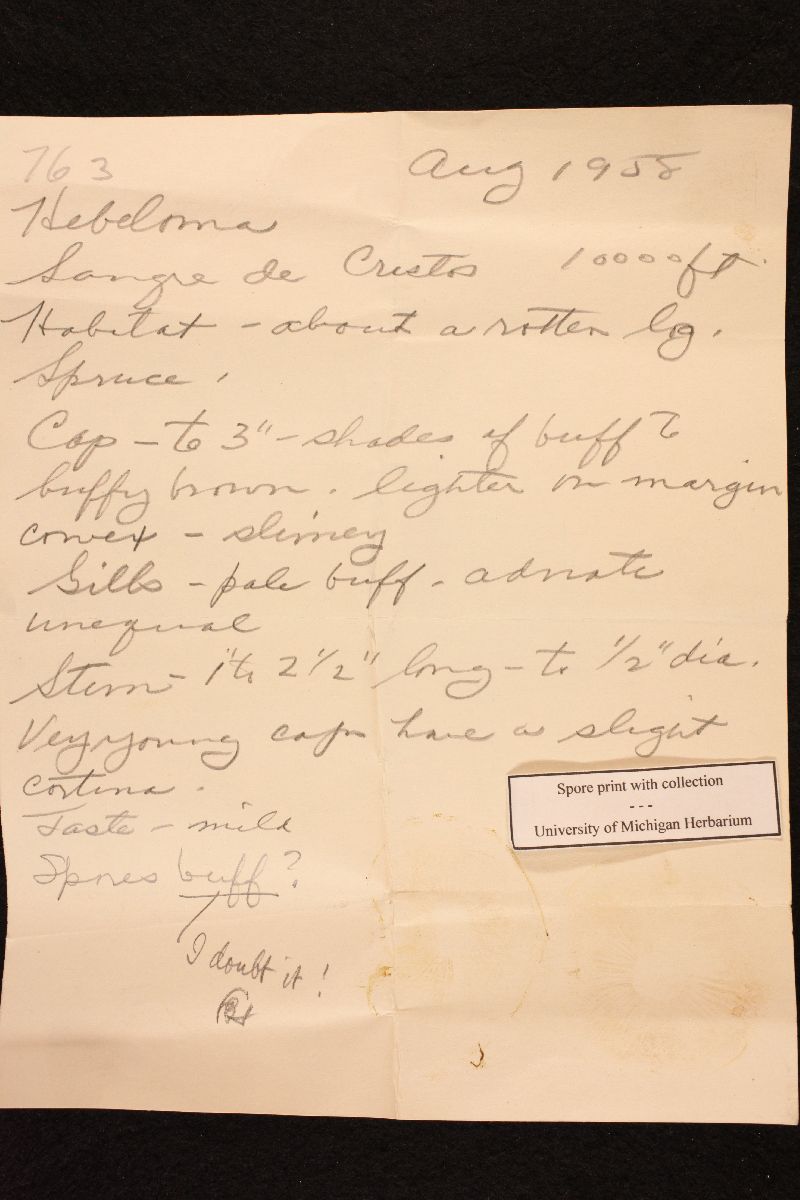 763 Aug 1958
Hebeloma
Sangre de Cristos 10000 ft.
Habitat - about a rotten log.
Spruce.
Cap - to 3" - shades of buff to
buffy brown. lighter on margin
convex - slimey
Gills - pale buff - adnate
unequal
Stem - 1" to 2 1/2" long - to 1/2" dia.
Very young caps have a slight
cortina.
Taste - mild
Spores buff?
I doubt it!
Spore print with collection
---
University of Michigan Herbarium